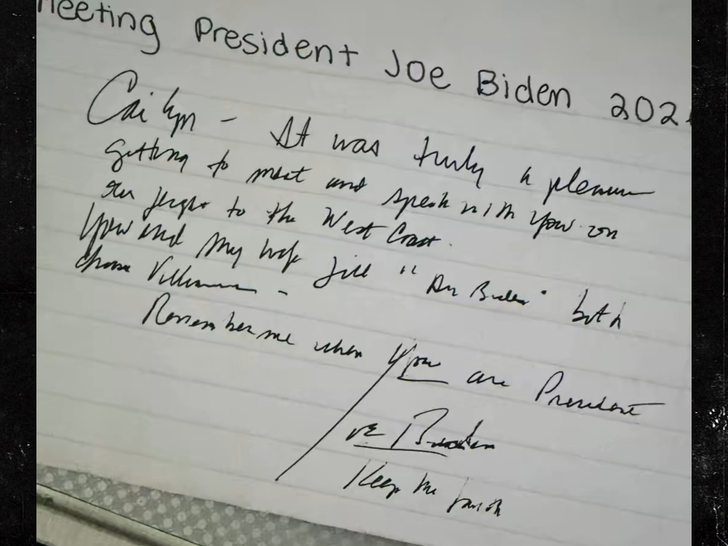 Meeting President Joe Biden 202
Caitlyn - It was truly a pleasure
getting to meet and speak with you on
our flight to the West Coast.
You and my wife Jill "Dr Biden" both
chose Villanova -
Remember me when you are President
Joe Biden
Keep the faith